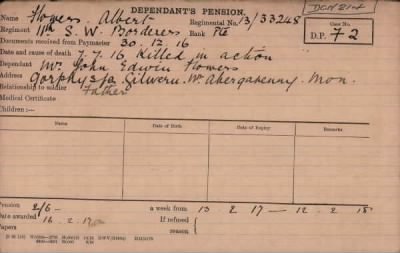 DCN 2/14
DEPENDANT'S PENSION.
Name Flowers, Albert Regimental No. 13/33248
Case No.
Regiment 11th S. W. Borderers Rank Pte
D.P. 72
Documents received from Paymaster 30. 12. 16
Date and cause of death 7.7.16 Killed in action
Dependant Mr. John Edwin Flowers
Address Gilwern. Nr. Abergavenny. Mon.
Relationship to soldier Father
Medical Certificate
Children:—
Name Date of Birth Date of Expiry Remarks
Pension 2/6 — a week from 13 2 17 — 12. 2 18
Date awarded 16. 2. 17
If refused
Papers reason